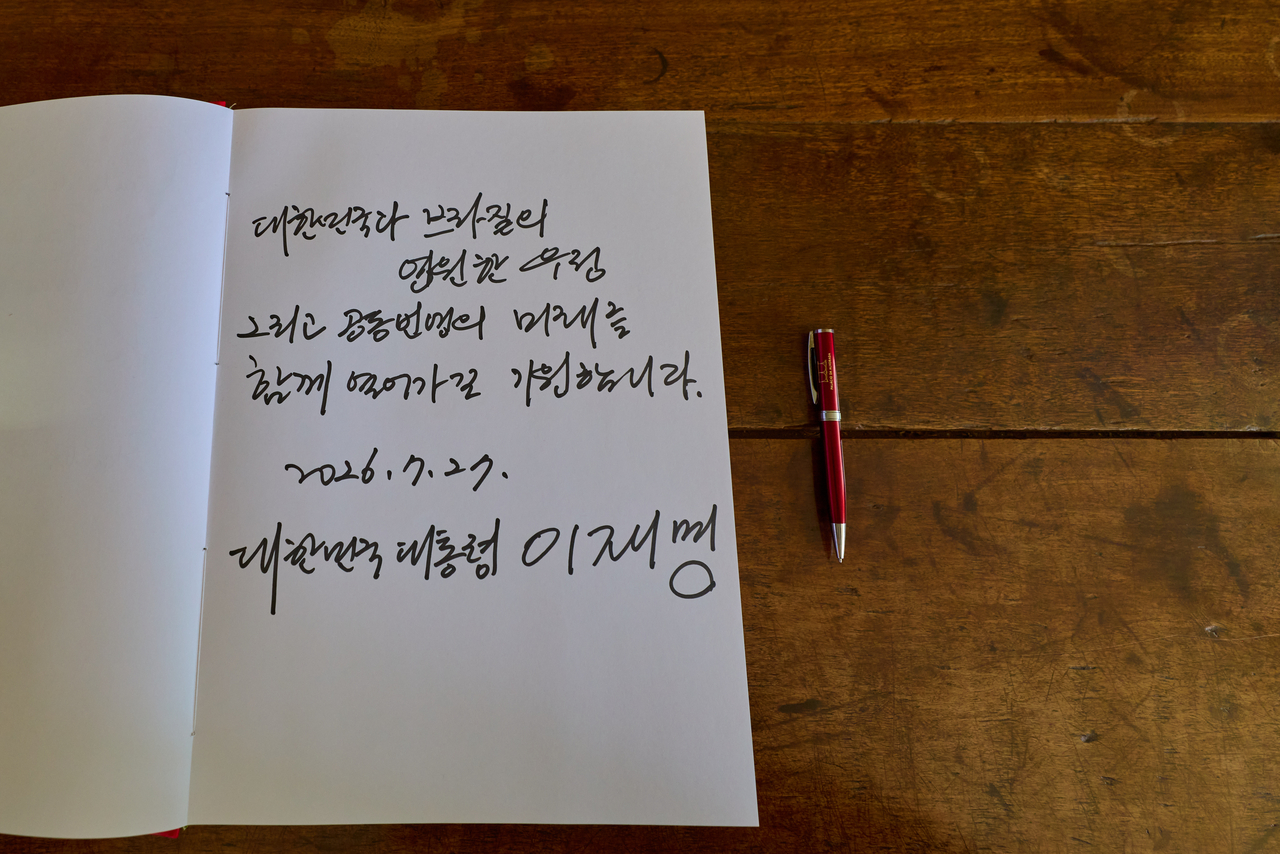 대한민국과 브라질의
영원한 우정
그리고 공동번영의 미래를
함께 열어가길 기원합니다.
2026.7.27.
대한민국 대통령 이재명